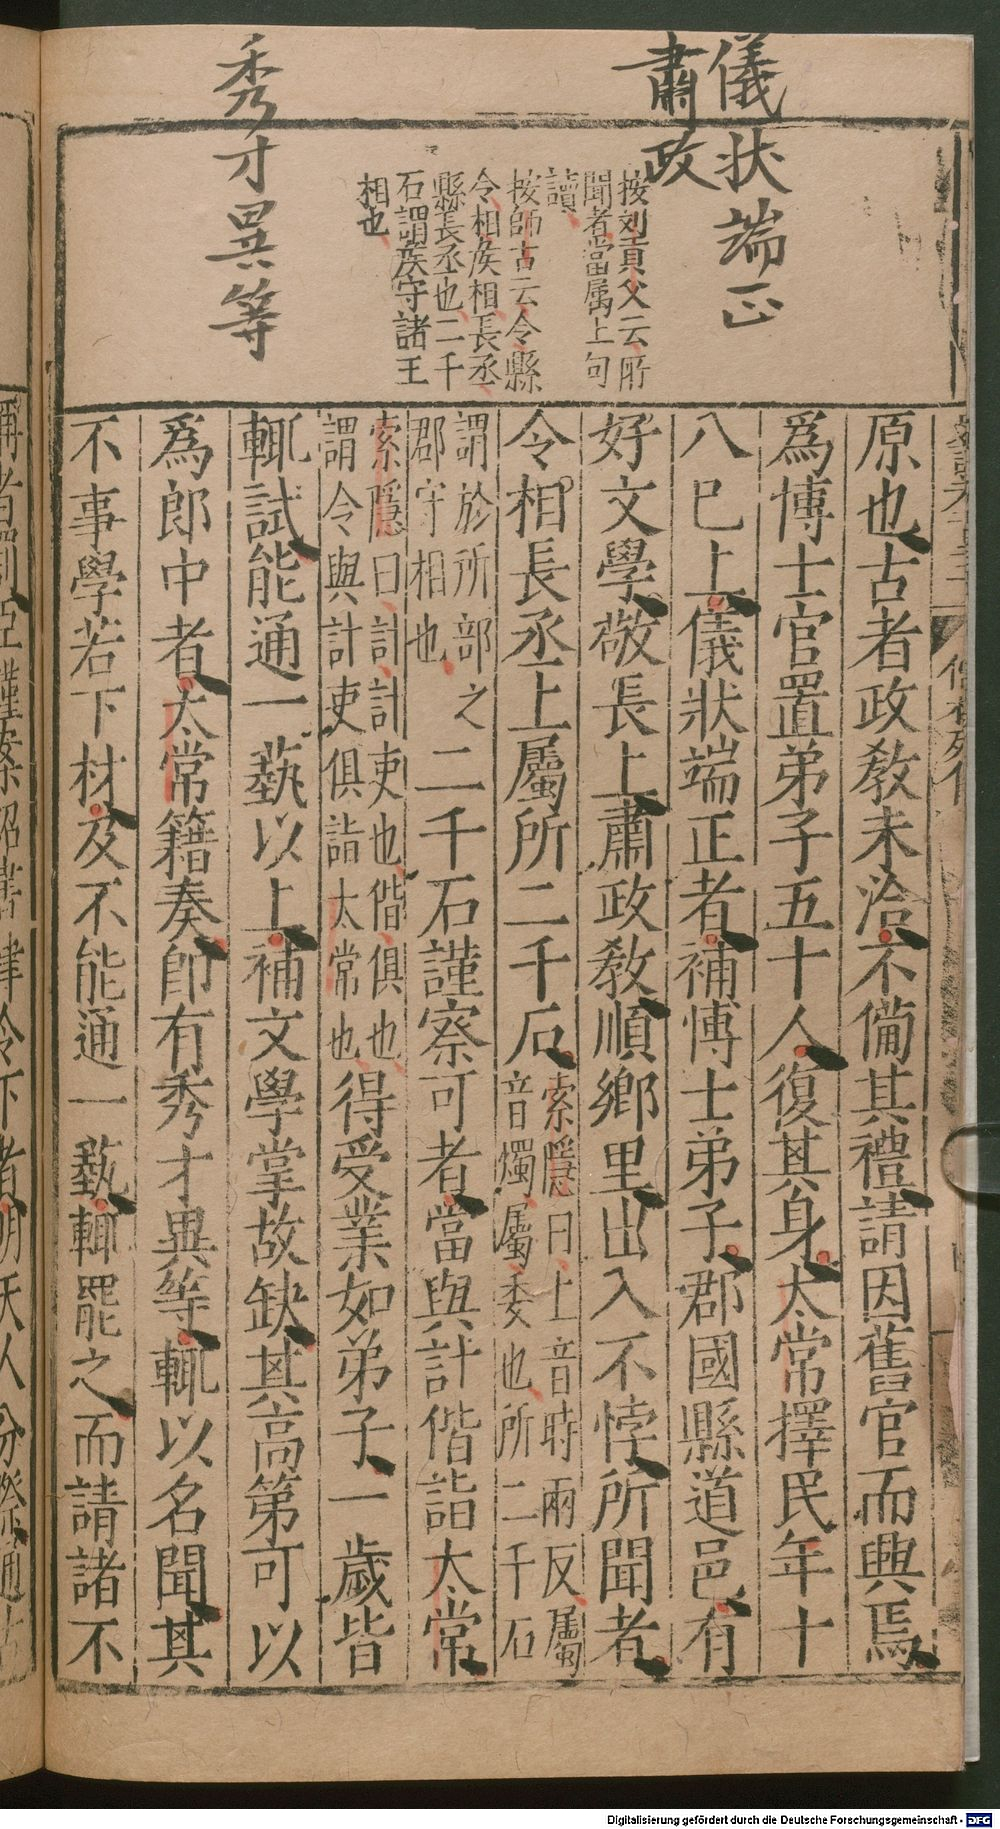 儀状端正
肅政
按刘貢父云所
聞者當属上句
讀
按師古云令縣
令相矦相長丞
縣長丞也二千
石謂矦守諸王
相也
秀才異等
原也古者政教未洽不僃其禮請因舊官而興焉
爲博士官置弟子五十人復其身太常擇民年十
八已上儀狀端正者補博士弟子郡國縣道邑有
好文學敬長上肅政教順鄉里出入不悖所聞者
令相長丞上屬所二千石索隱曰上音時兩反屬
音燭屬委也所二千石
謂於所部之
郡守相也
二千石謹察可者當與計偕詣太常
索隱曰計計吏也偕俱也
謂令與計吏俱詣太常也
得受業如弟子一歲皆
輒試能通一藝以上補文學掌故缺其高第可以
爲郎中者太常籍奏即有秀才異等輒以名聞其
不事學若下材及不能通一藝輒罷之而請諸不
Digitalisierung gefördert durch die Deutsche Forschungsgemeinschaft - DFG